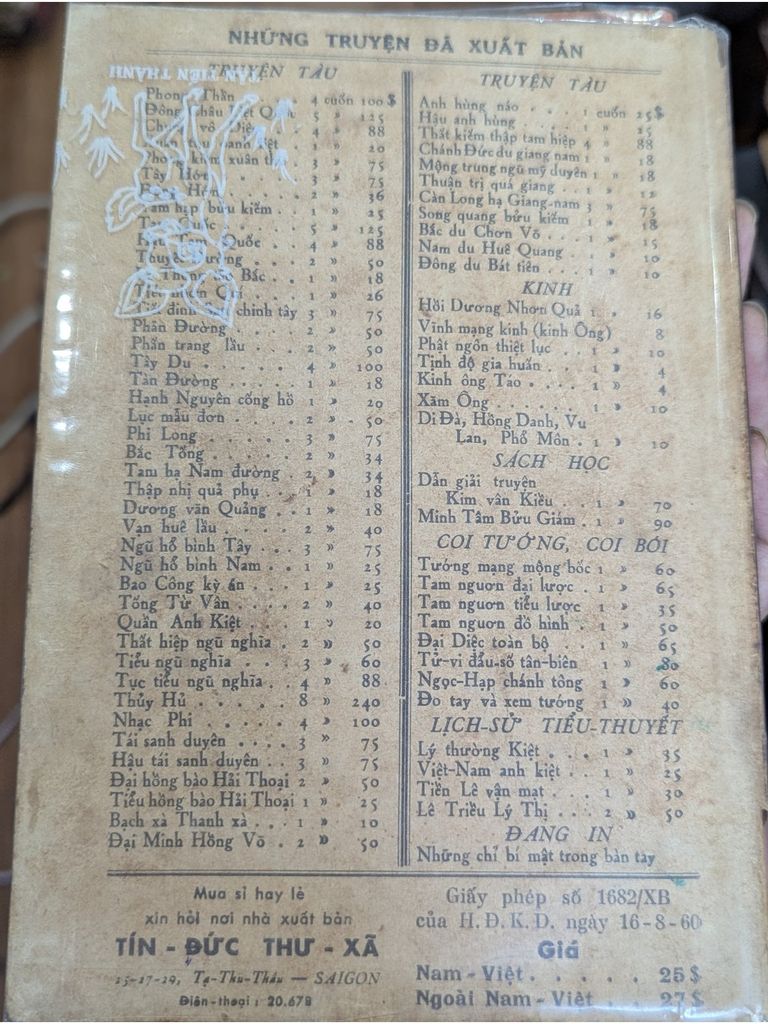 NHỮNG TRUYỆN ĐÃ XUẤT BẢN
TRUYỆN TÀU
TÂN TIẾN THÀNH
Phong Thần . 4 cuốn 100 $
5 » 125
4 » 88
1 » 20
3 » 75
Tây Hớn 3 » 75
2 » 36
Tam hạp bửu kiếm . . 1 » 25
5 » 125
Quốc . . . 4 » 88
2 » 50
Bắc . . 1 » 18
1 » 26
chinh tây 3 » 75
Phân Đường . . . . 2 » 50
Phấn trang lầu . . . 2 » 50
Tây Du . . . . . 4 » 100
Tàn Đường . . . . . 1 » 18
Hạnh Nguyên cống hồ 1 » 20
Lục mẫu đơn . . . . 2 » 50
Phi Long . . . . . 3 » 75
Bắc Tống . . . . . 2 » 34
Tam hạ Nam đường . 2 » 34
Thập nhị quả phụ . . 1 » 18
Dương văn Quảng . . 1 » 18
Vạn huê lầu . . . . 2 » 40
Ngũ hổ bình Tây . . . 3 » 75
Ngũ hổ bình Nam . . 1 » 25
Bao Công kỳ án . . . 1 » 25
Tống Từ Vân . . . . 2 » 40
Quần Anh Kiệt . . . 1 » 20
Thất hiệp ngũ nghĩa . . 2 » 50
Tiểu ngũ nghĩa . . . 3 » 60
Tục tiểu ngũ nghĩa . . 4 » 88
Thủy Hử . . . . . 8 » 240
Nhạc Phi . . . . . 4 » 100
Tái sanh duyên . . . . 3 » 75
Hậu tái sanh duyên . . 3 » 75
Đại hồng bào Hải Thoại 2 » 50
Tiểu hồng bào Hải Thoại 1 » 25
Bạch xà Thanh xà . . . 1 » 10
Đại Minh Hồng Võ . . 2 » 50
TRUYỆN TÀU
Anh hùng náo . . . 1 cuốn 25 $
Hậu anh hùng . . . 1 » 25
Thất kiếm thập tam hiệp 4 » 88
Chánh Đức du giang nam 1 » 18
Mộng trung ngũ mỹ duyên 1 » 18
Thuận trị quá giang . . 1 » 12
Càn Long hạ Giang-nam 3 » 75
Song quang bửu kiếm . 1 » 18
Bắc du Chơn Võ . . . 1 » 15
Nam du Huê Quang . . 1 » 10
Đông du Bát tiên . . . 1 » 10
KINH
Hồi Dương Nhơn Quả 1 » 16
Vĩnh mạng kinh (kinh Ông) 8
Phật ngôn thiệt lục . . 1 » 10
Tịnh độ gia huấn . . . 1 » 4
Kinh ông Táo . . . . 1 » 4
Xăm Ông . . . . . 1 » 10
Di Đà, Hồng Danh, Vu
Lan, Phổ Môn . 1 » 10
SÁCH HỌC
Dẫn giải truyện
Kim vân Kiều . . . 1 » 70
Minh Tâm Bửu Giám . 1 » 90
COI TƯỚNG, COI BÓI
Tướng mạng mộng bốc 1 » 60
Tam nguơn đại lược . 1 » 65
Tam nguơn tiểu lược . 1 » 35
Tam nguơn đồ hình . . 1 » 50
Đại Diệc toàn bộ . . . 1 » 65
Tử-vi đẩu-số tân-biên . 1 » 80
Ngọc-Hạp chánh tông . 1 » 60
Đo tay và xem tướng . 1 » 40
LỊCH-SỬ TIỂU-THUYẾT
Lý thường Kiệt . . . 1 » 35
Việt-Nam anh kiệt . . 1 » 25
Tiền Lê vận mạt . . . 1 » 30
Lê Triều Lý Thị . . . 2 » 50
ĐANG IN
Những chỉ bí mật trong bàn tay
Mua sỉ hay lẻ
xin hỏi nơi nhà xuất bản
TÍN - ĐỨC THƯ - XÃ
25-27-29, Tạ-Thu-Thâu — SAIGON
Điện-thoại : 20.678
Giấy phép số 1682/XB
của H.Đ.K.D. ngày 16-8-60
Giá
Nam - Việt . . . . . 25 $
Ngoài Nam - Việt . . 27 $